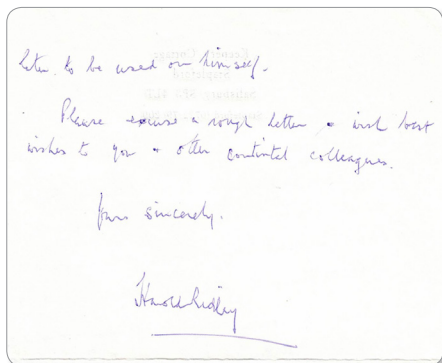 later to be used on himself.
Please excuse a rough letter & with best
wishes to you & other continental colleagues.
Yours sincerely.
Harold Ridley